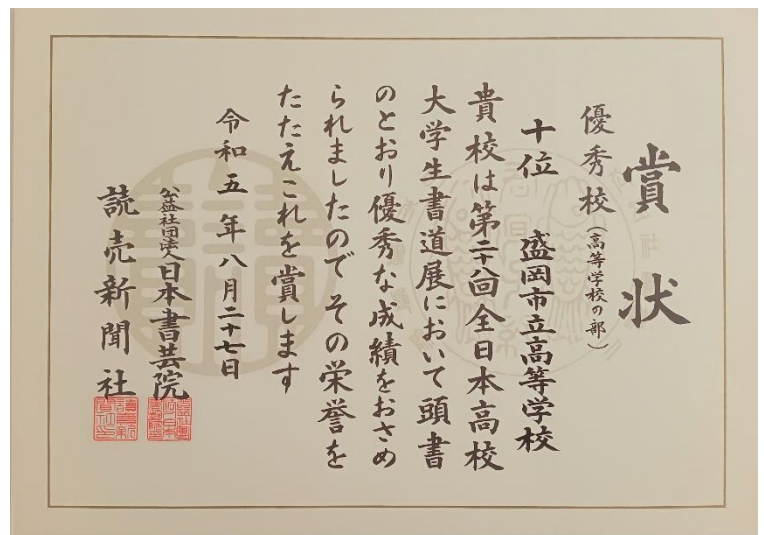 賞状
優秀校（高等学校の部）
十位　盛岡市立高等学校
貴校は第二十八回全日本高校
大学生書道展において頭書
のとおり優秀な成績をおさめ
られましたのでその栄誉を
たたえこれを賞します
令和五年八月二十七日
公益社団法人日本書芸院
読売新聞社